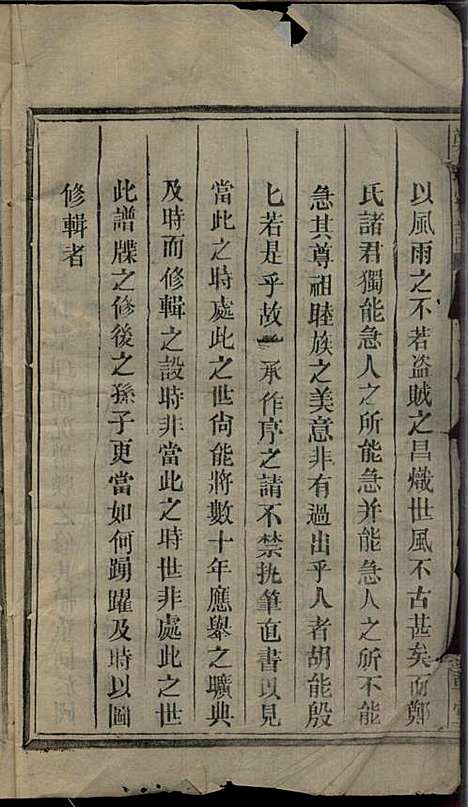 以風雨之不若盗賊之昌熾世風不古甚矣而鄭
氏諸君獨能急人之所能急并能急人之所不能
急其尊祖睦族之美意非有過出乎人者胡能殷
匕若是乎故承作序之請不禁执筆直書以見
當此之時處此之世尙能將數十年應舉之曠典
及時而修輯之設時非當此之時世非處此之世
此譜牒之修後之孫子更當如何踴躍及時以圖
修輯者